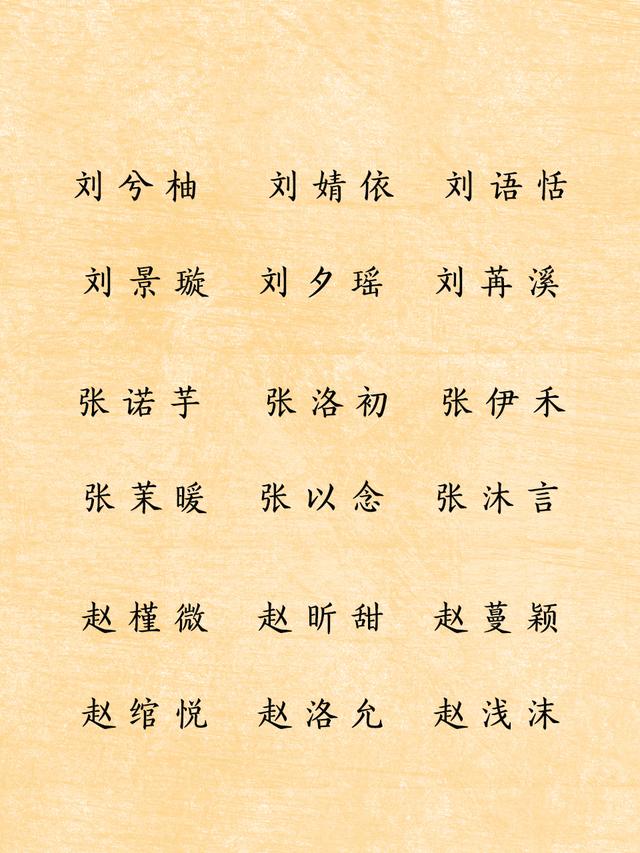 刘兮柚 刘婧依 刘语恬
刘景璇 刘夕瑶 刘苒溪
张诺芋 张洛初 张伊禾
张茉暖 张以念 张沐言
赵槿微 赵昕甜 赵蔓颖
赵绾悦 赵洛允 赵浅沫